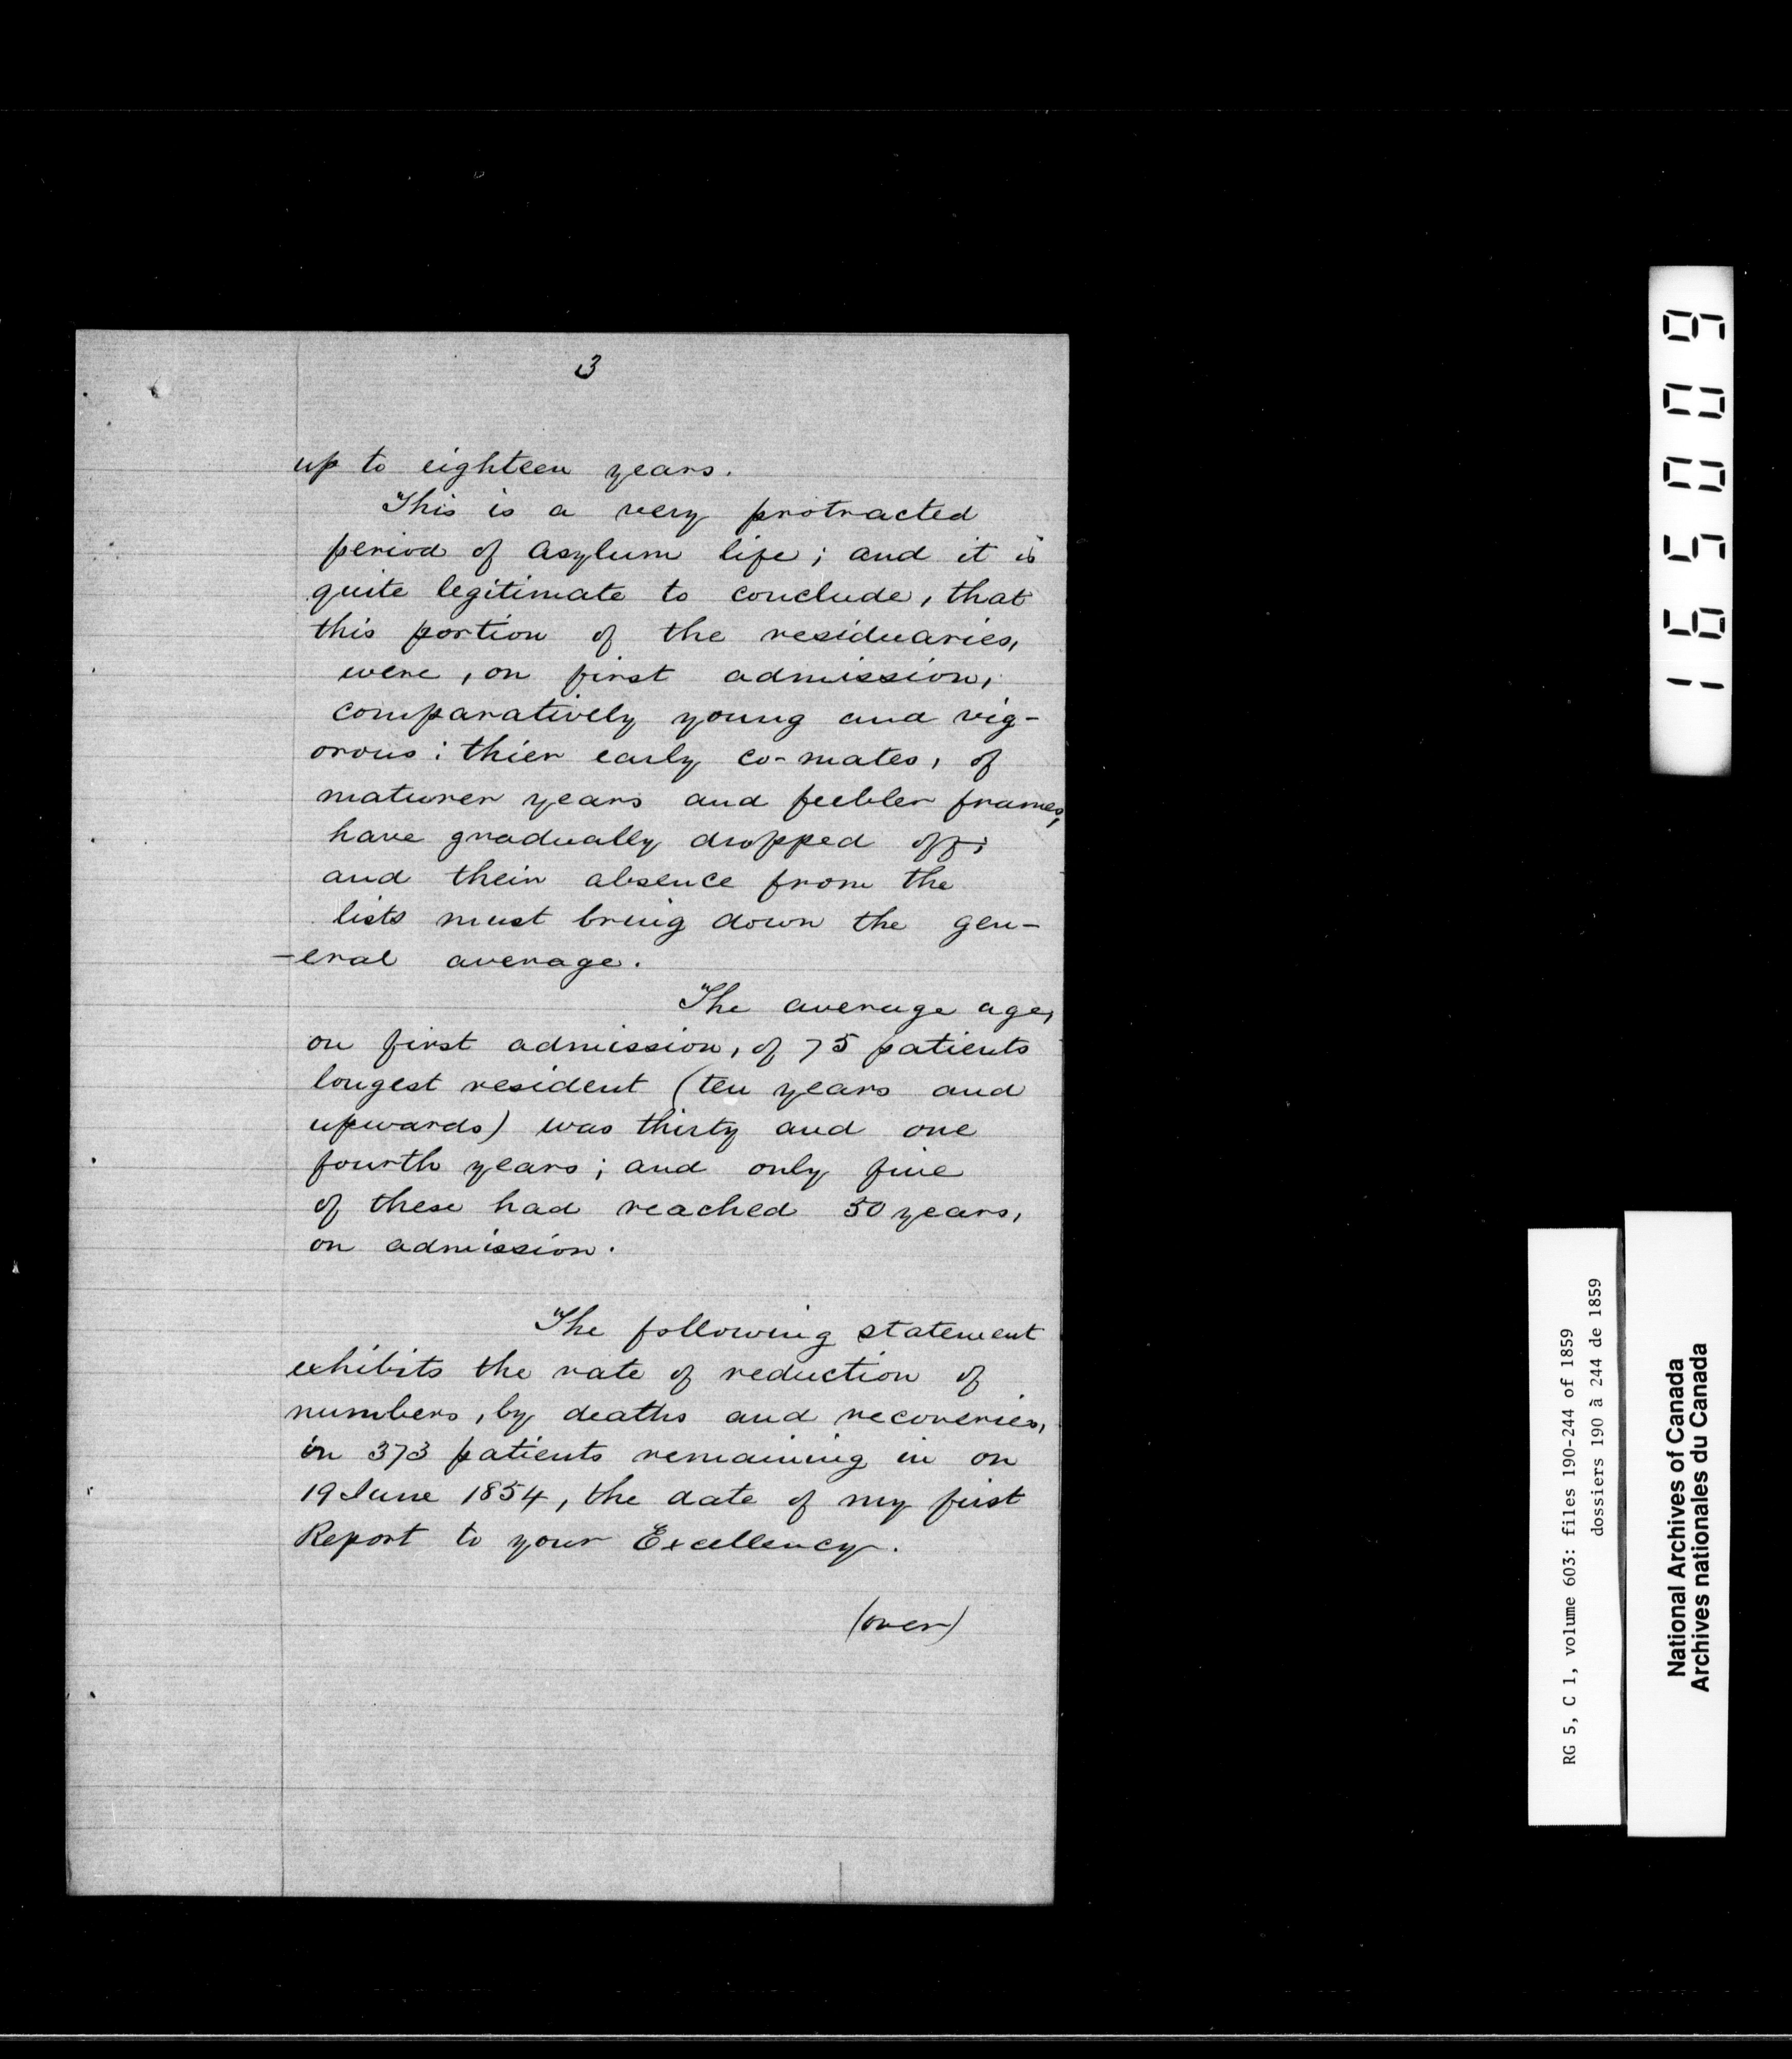 3
up to eighteen years.
This is a very protracted
period of Asylum life; and it is
quite legitimate to conclude, that
this portion of the residuaries,
were, on first admission,
comparatively young and vig-
orous: thier early co-mates, of
maturer years and feebler frames,
have gradually dropped off;
and their absence from the
lists must bring down the gen-
-eral average.
The average age,
on first admission, of 75 patients
longest resident (ten years and
upwards) was thirty and one
fourth years; and only five
of these had reached 50 years,
on admission.
The following statement
exhibits the rate of reduction of
numbers, by deaths and recoveries,
in 373 patients remaining in on
19 June 1854, the date of my first
Report to your Excellency.
(over)
165009
RG 5, C 1, volume 603: files 190-244 of 1859
dossiers 190 à 244 de 1859
National Archives of Canada
Archives nationales du Canada